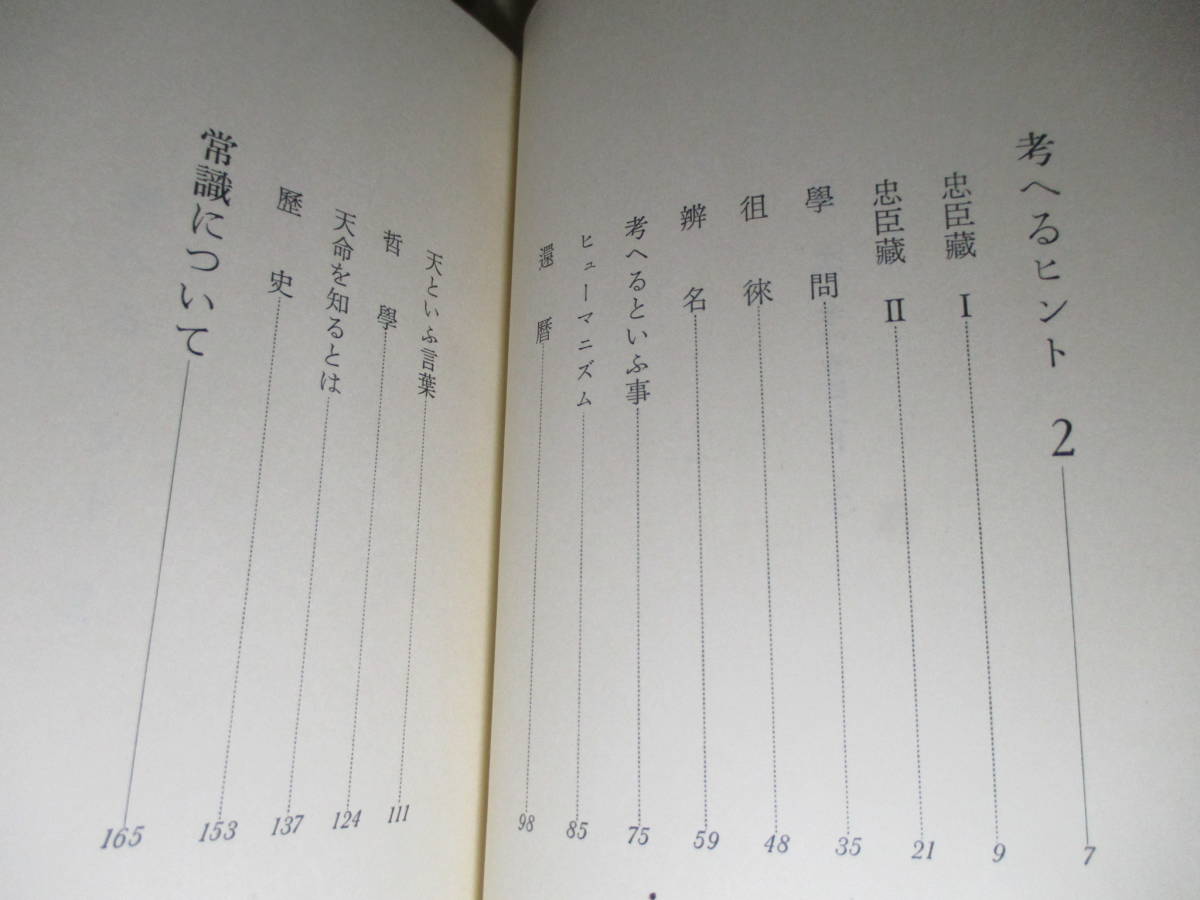 考へるヒント 2 7
忠臣藏 I 9
忠臣藏 II 21
學問 35
徂徠 48
辨名 59
考へるといふ事 75
ヒューマニズム 85
還暦 98
天といふ言葉 111
哲學 124
天命を知るとは 137
歷史 153
常識について 165